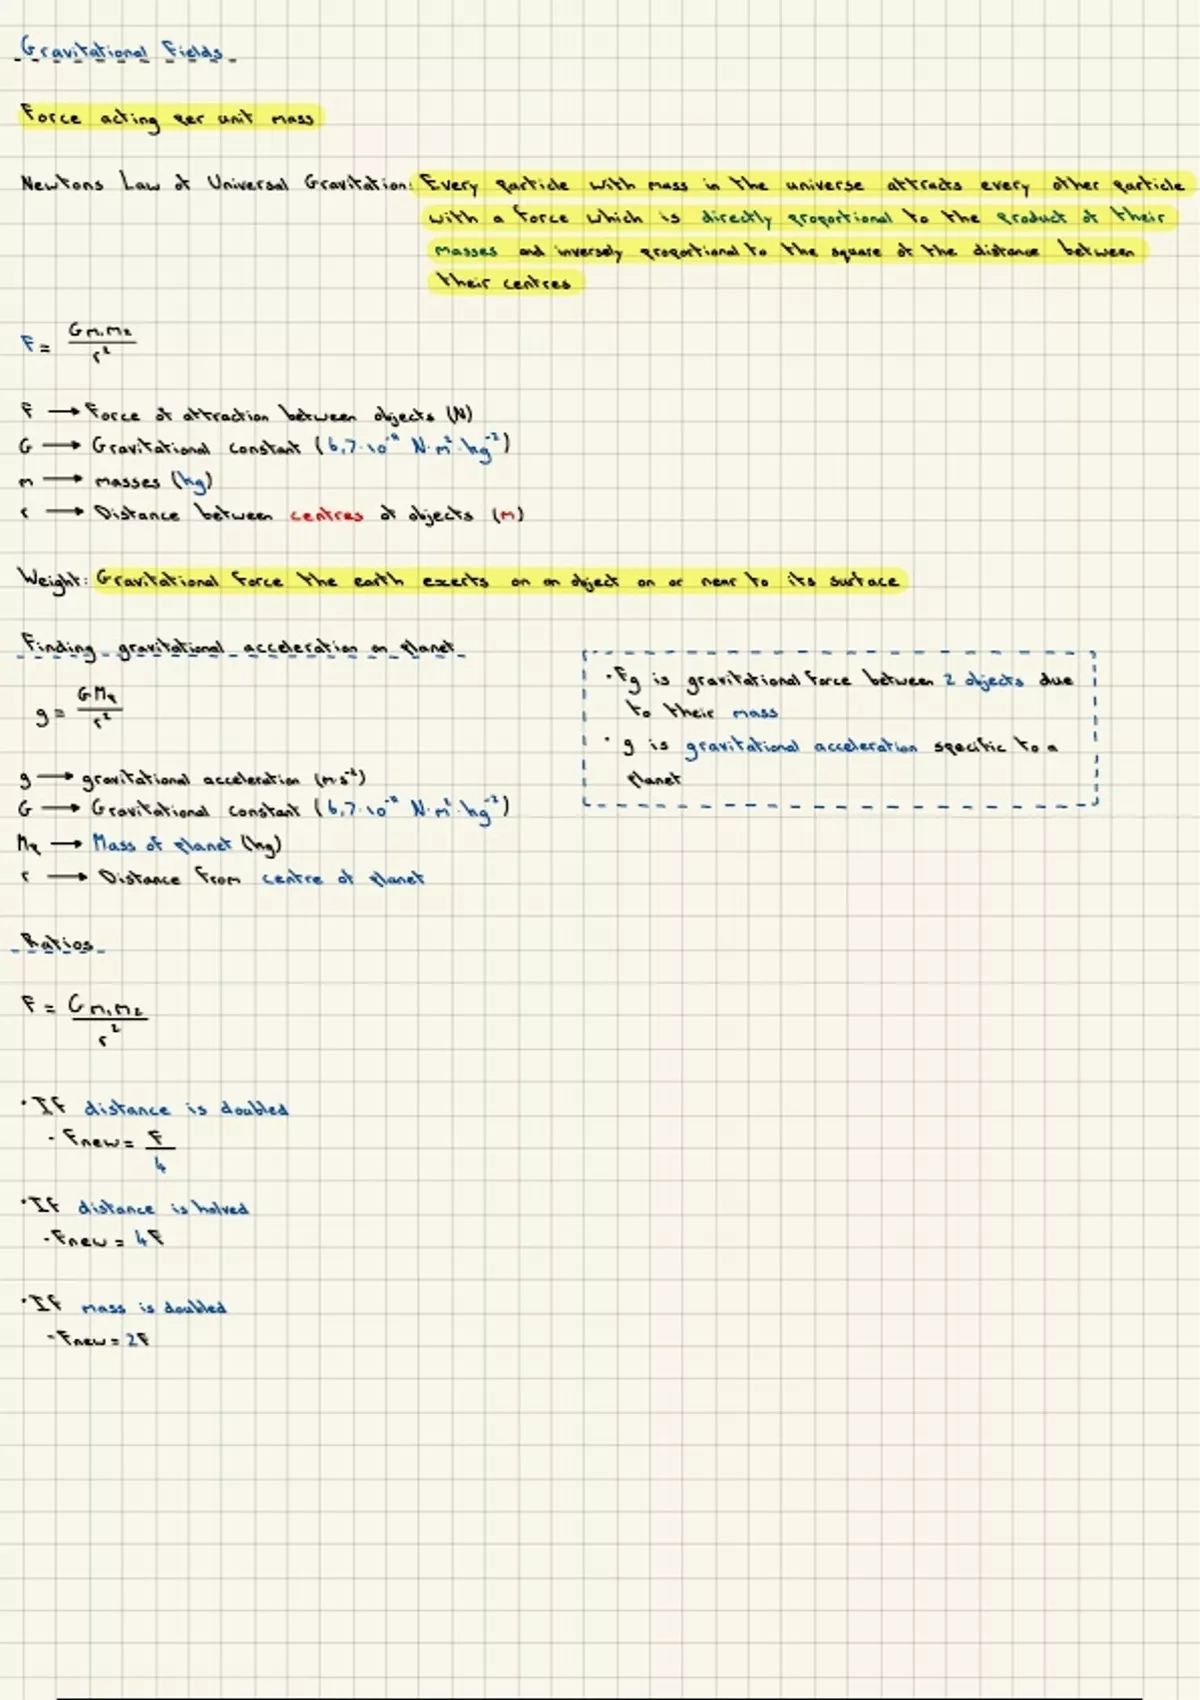 Gravitational Fields
Force acting per unit mass
Newtons Law of Universal Gravitation: Every particle with mass in the universe attracts every other particle
with a force which is directly proportional to the product of their
masses and inversely proportional to the square of the distance between
their centres
F = Gm₁m₂/r²
F → Force of attraction between objects (N)
G → Gravitational constant (6,7·10⁻¹¹ N·m²·kg⁻²)
m → masses (kg)
r → Distance between centres of objects (m)
Weight: Gravitational force the earth exerts on an object on or near to its surface
Finding gravitational acceleration on planet
g = GMₚ/r²
g → gravitational acceleration (m·s⁻²)
G → Gravitational constant (6,7·10⁻¹¹ N·m²·kg⁻²)
Mₚ → Mass of planet (kg)
r → Distance from centre of planet
· Fg is gravitational force between 2 objects due
to their mass
· g is gravitational acceleration specific to a
planet
Ratios
F = Gm₁m₂/r²
· If distance is doubled
- Fnew = F/4
· If distance is halved
- Fnew = 4F
· If mass is doubled
- Fnew = 2F